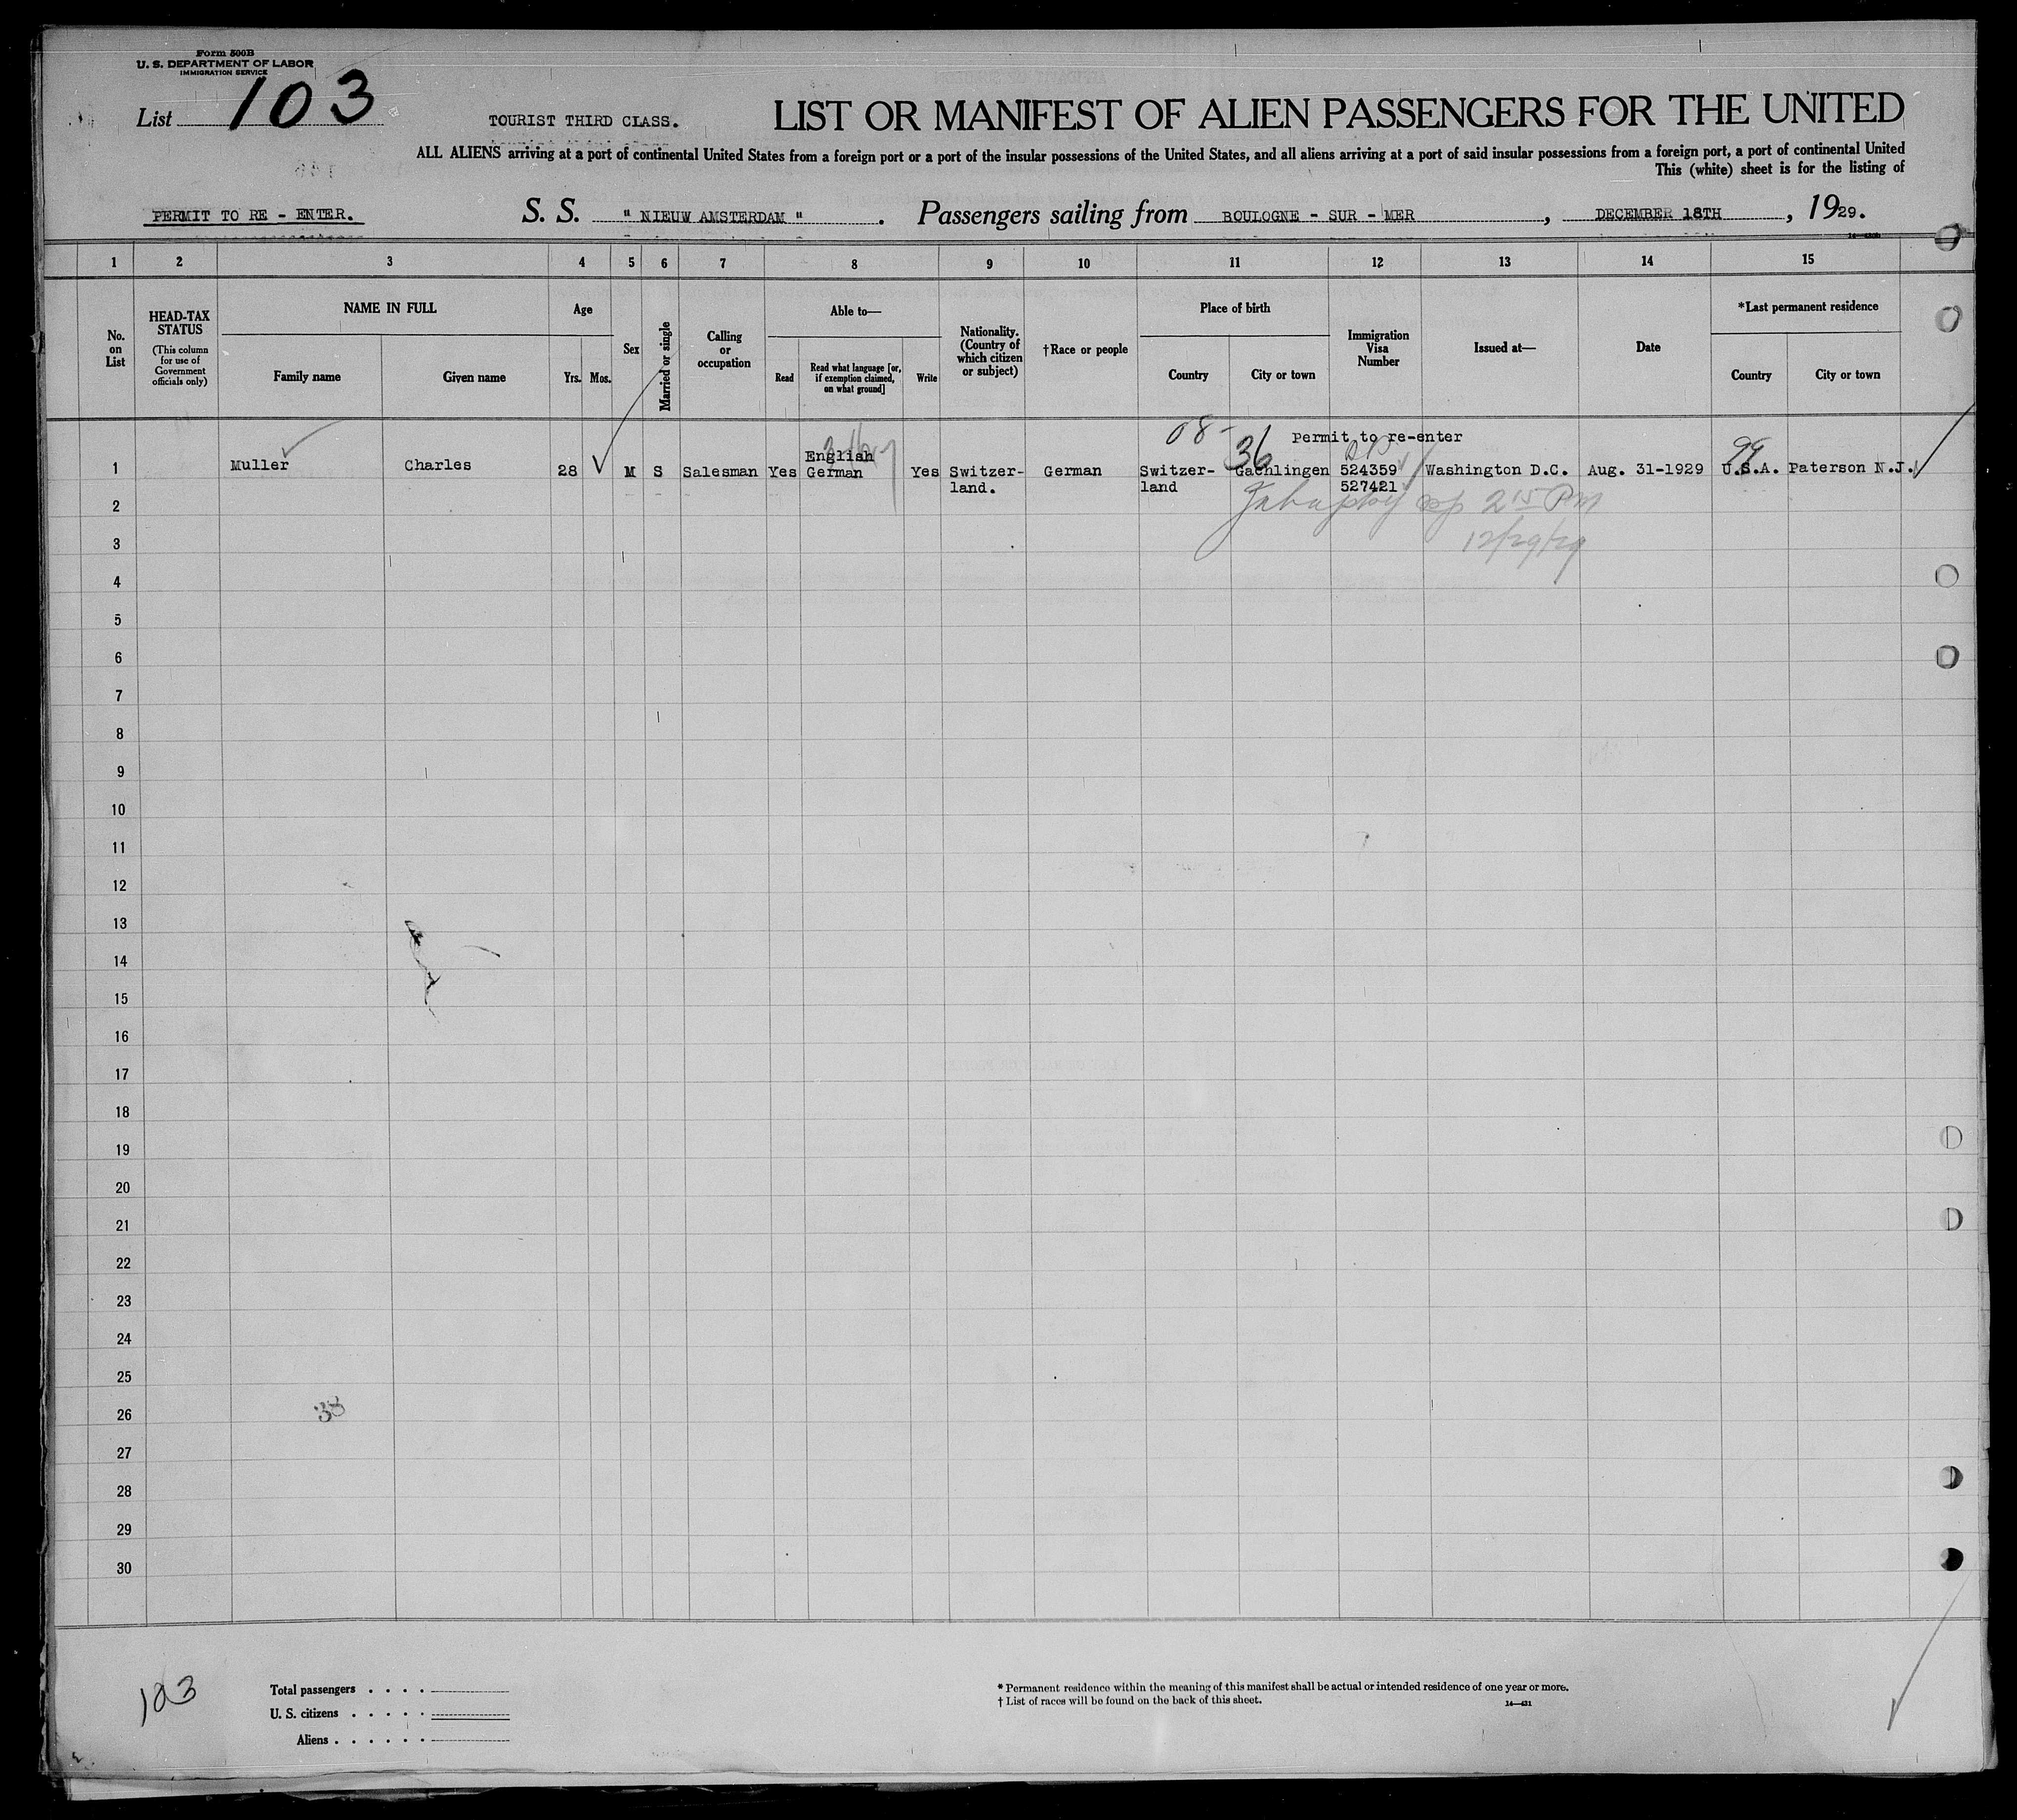 Form 500B
U. S. DEPARTMENT OF LABOR
IMMIGRATION SERVICE
List 103
TOURIST THIRD CLASS.
LIST OR MANIFEST OF ALIEN PASSENGERS FOR THE UNITED
ALL ALIENS arriving at a port of continental United States from a foreign port or a port of the insular possessions of the United States, and all aliens arriving at a port of said insular possessions from a foreign port, a port of continental United
This (white) sheet is for the listing of
PERMIT TO RE - ENTER.
S. S. " NIEUW AMSTERDAM " . Passengers sailing from BOULOGNE - SUR - MER , DECEMBER 18TH , 1929.
1 2 3 4 5 6 7 8 9 10 11 12 13 14 15
No. on List
HEAD-TAX STATUS
(This column for use of Government officials only)
NAME IN FULL
Family name
Given name
Age
Yrs.
Mos.
Sex
Married or single
Calling or occupation
Able to—
Read
Read what language [or, if exemption claimed, on what ground]
Write
Nationality. (Country of which citizen or subject)
†Race or people
Place of birth
Country
City or town
Immigration Visa Number
Issued at—
Date
*Last permanent residence
Country
City or town
08- 36 Permit to re-enter 99
1 Muller Charles 28 M S Salesman Yes English German Yes Switzer-land. German Switzer-land Gachlingen 524359 527421 Washington D.C. Aug. 31-1929 U.S.A. Paterson N.J.
2 15 PM
12/29/29
2
3
4
5
6
7
8
9
10
11
12
13
14
15
16
17
18
19
20
21
22
23
24
25
26
38
27
28
29
30
103
Total passengers . . . .
U. S. citizens . . . . .
Aliens . . . . . .
* Permanent residence within the meaning of this manifest shall be actual or intended residence of one year or more.
† List of races will be found on the back of this sheet.
14—431